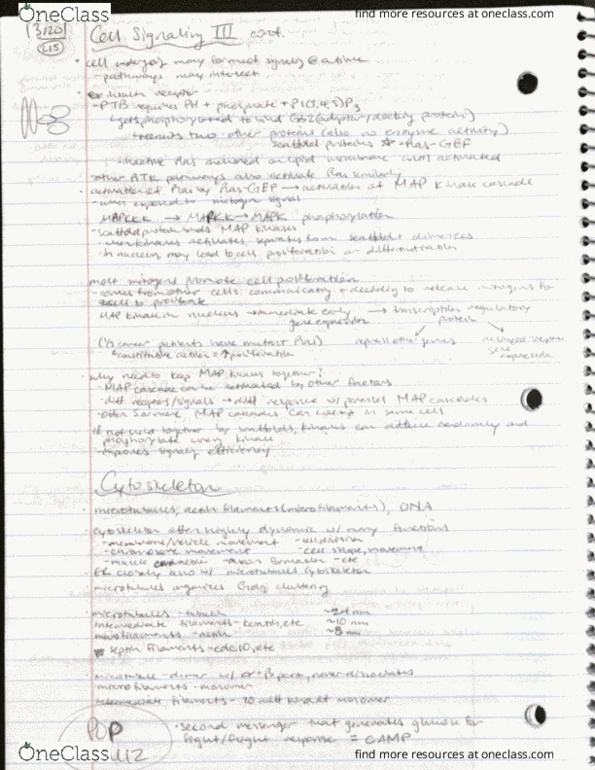 OneClass
find more resources at oneclass.com
3/20
L15
Cell Signaling III cont.
· cell undergoing many formed signals @ a time
- pathways may interact
· ex. insulin receptor
- PTB requires PH + phosphate + PI(3,4,5)P3
gets phosphorylated to bind Grb2 (adaptor/docking proteins)
recruits two other proteins (also no enzyme activity)
scaffold proteins Ras-GEF
- inactive Ras anchored on lipid membrane until activated
other RTK pathways also activate Ras similarly
· activation of Ras by Ras-GEF → activation of MAP kinase cascade
- when exposed to mitogen signal
MAPKKK → MAPKK → MAPK phosphorylation
- scaffold protein binds MAP kinases
- when kinases activated, separates from scaffold + dimerizes
- in nucleus, may lead to cell proliferation or differentiation
· most mitogens promote cell proliferation
- comes from other cells, communicating + deciding to release mitogens for
cell to proliferate
MAP kinase in nucleus → immediate early → transcription regulatory
gene expression protein
(1/3 cancer patients have mutant Ras) repress other genes delayed response
gene
expression
constitutive active = ↑ proliferation
· why need to keep MAP kinases together?
- MAP cascade can be activated by other factors
- diff receptors/signals → diff response w/ parallel MAP cascades
- often 5 or more MAP cascades can coexist in same cell
if not held together by scaffolds, kinases can diffuse randomly and
phosphorylate wrong kinase
- improves signaling efficiency
Cytoskeleton
· microtubules, actin filaments (microfilaments), DNA
· cytoskeleton often highly dynamic w/ many functions
- membrane/vesicle movement - cell division
- chromosome movement - cell shape, movement
- muscle contraction - axon formation - etc
· ER closely assoc w/ microtubules cytoskeleton
· microtubules organizes Golgi clustering
· microtubules - tubulin ~24 nm
intermediate filaments - keratin, etc. ~10 nm
microfilaments - actin ~8 nm
septin filaments - cdc10, etc
· microtubule - dimer w/ α + β part, never dissociates
microfilaments - monomer
intermediate filaments - monomer
POP
QUIZ
· second messenger that generates glucose for
fight/flight response = cAMP
OneClass
find more resources at oneclass.com